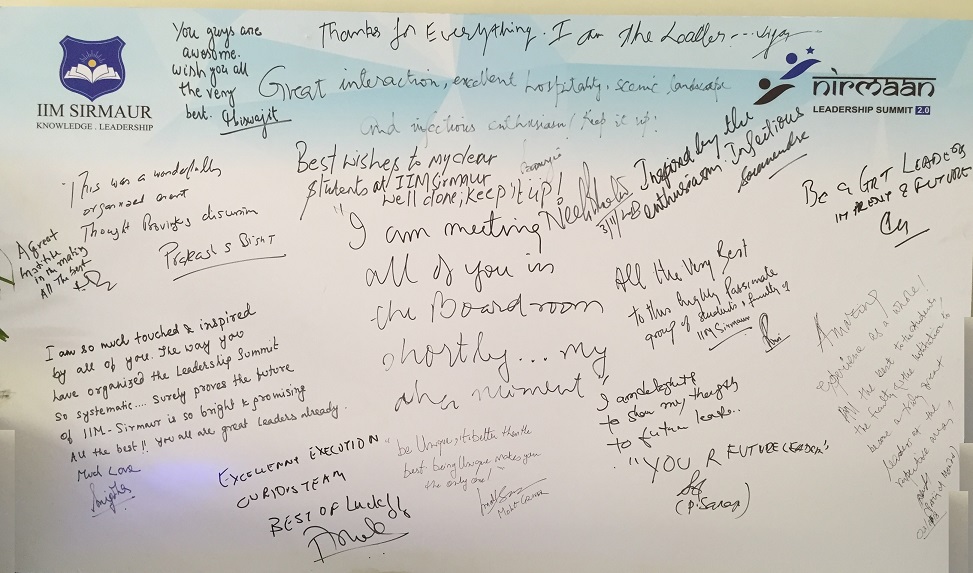 IIM SIRMAUR
KNOWLEDGE . LEADERSHIP
nirmaan
LEADERSHIP SUMMIT 2.0
You guys are
awesome.
wish you all
the very
best.
Biswajit
Thanks for Everything. I am The Leader...
Great interaction, excellent hospitality, scenic landscape
and infectious enthusiasm! Keep it up!
"This was a wonderfully
organized event
Thought Provoking discussion
Prakash S Bisht
A great
institute
in the making
All The best
Best wishes to my dear
students at IIM Sirmaur
Well done, keep it up!
Inspired by the
infectious
enthusiasm!
"I am meeting
all of you in
the Boardroom
shortly... my
aha moment"
BE a GRT LEADERS
IN FRONT & FUTURE
All the Very Best
to this highly Passionate
group of students & faculty of
IIM Sirmaur
I am so much touched & inspired
by all of you. The way you
have organized the Leadership Summit
So systematic.... Surely proves the future
of IIM-Sirmaur is so bright & promising
All the best!! You all are great Leaders already.
Much Love
EXCELLENT EXECUTION
CURIOUS TEAM
BEST OF Luck!!
"be Unique, it's better than the
best being Unique makes you
the only one!"
I am delighted
to share my thoughts
to future leaders..
"YOU R FUTURE LEADERS"
(P. Saran)
Amazing
experience as a whole!
All the best to the students
the faculty & the institution to
become a truly great
leaders of the